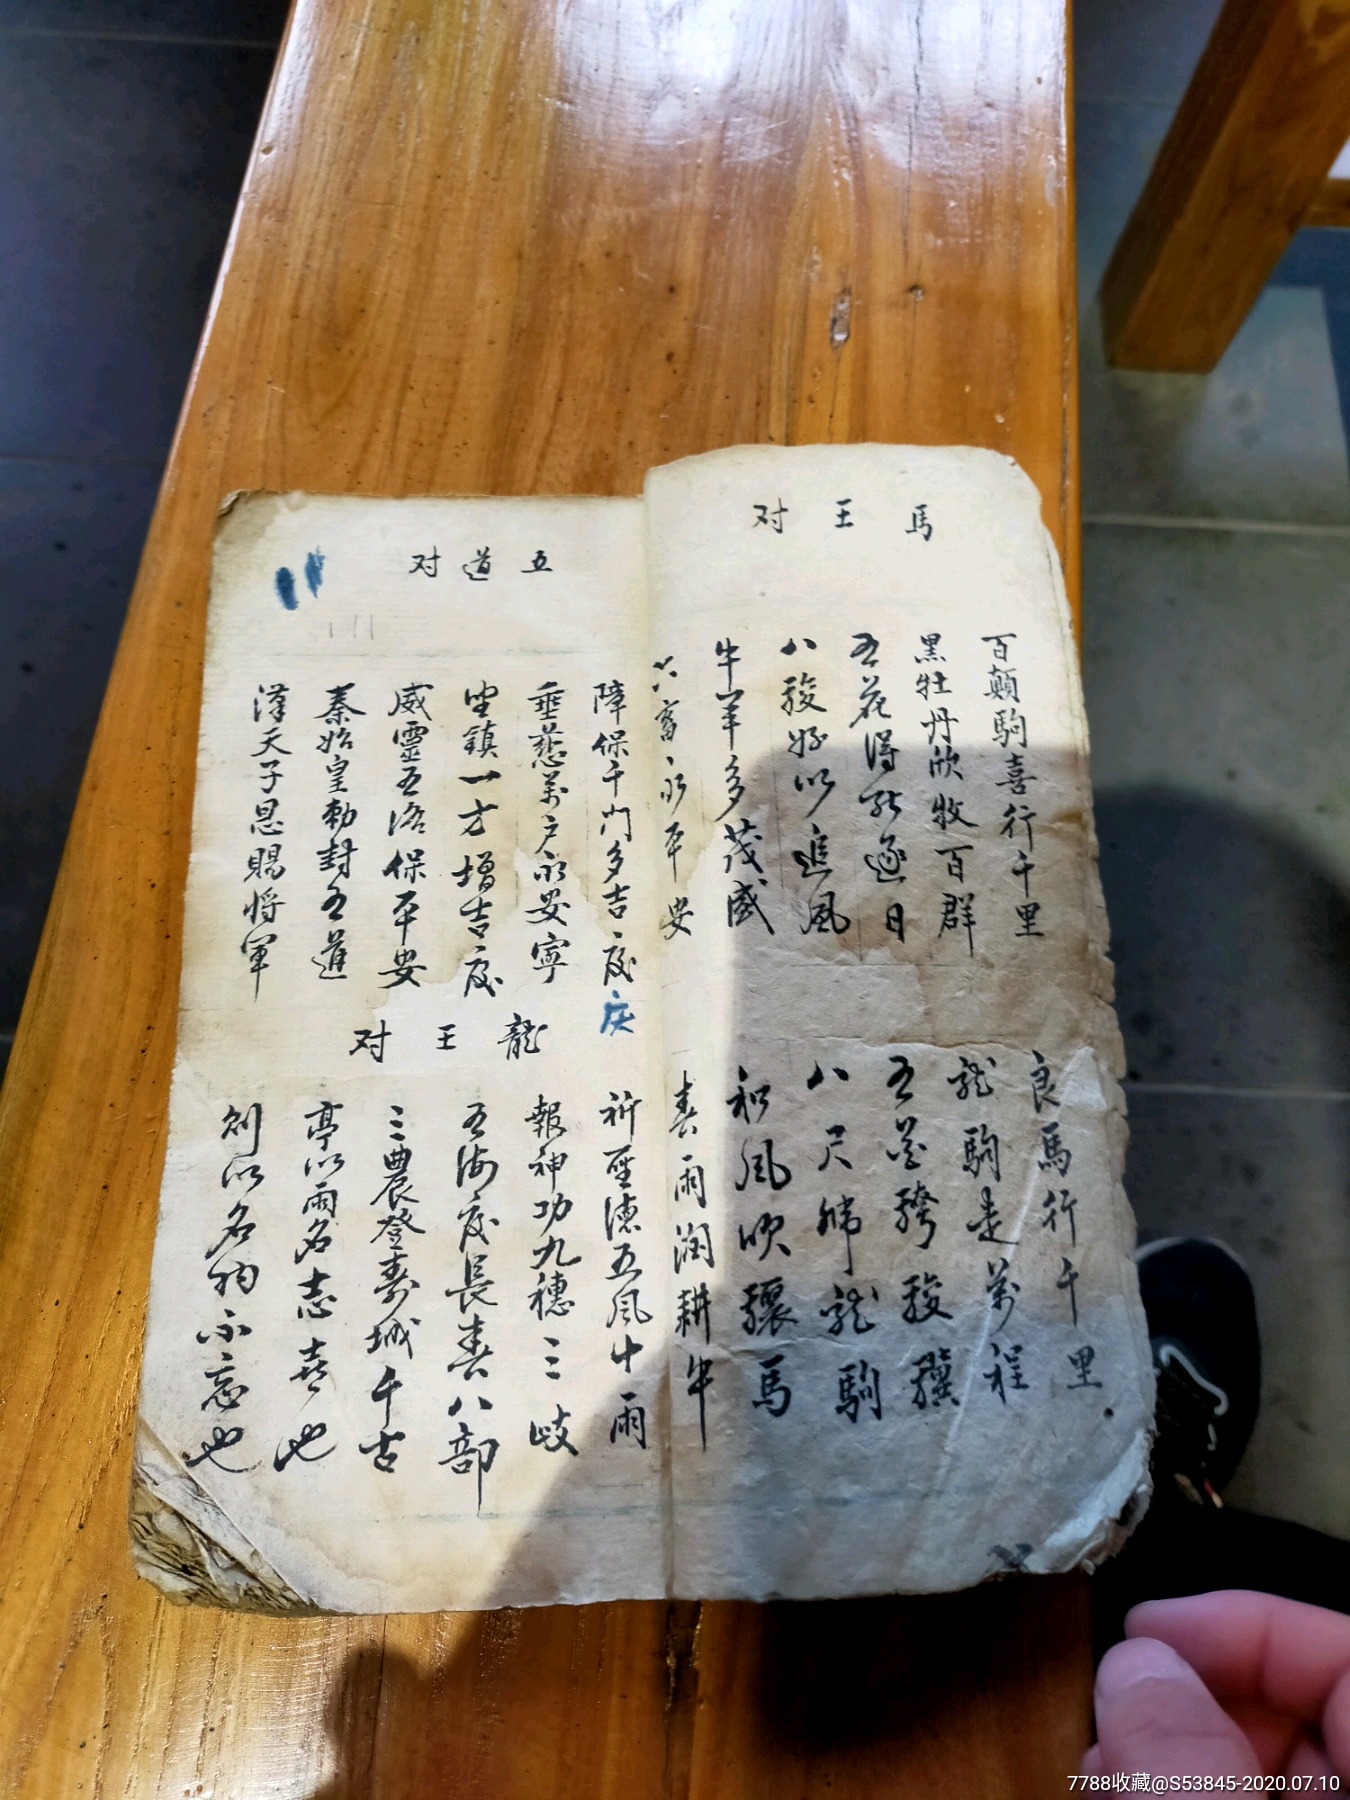 馬王对
百顛駒喜行千里
黑牡丹欣牧百群
五花得能逐日
八駿好似追風
牛羊多茂盛
六畜永平安
良馬行千里
龍駒走萬程
五花騁駿驥
八尺稱龍駒
和風吹驤馬
春雨潤耕牛
五道对
障保千门多吉慶
慶
垂慈萬户永安寧
坐鎮一方增吉慶
威靈五洛保平安
秦始皇勅封五道
漢天子恩賜将軍
龍王对
祈聖德五風十雨
報神功九穗三岐
五海慶長春八部
三農登壽城千古
亭以雨名志喜也
刹以名祠示忘也
7788收藏@S53845-2020.07.10